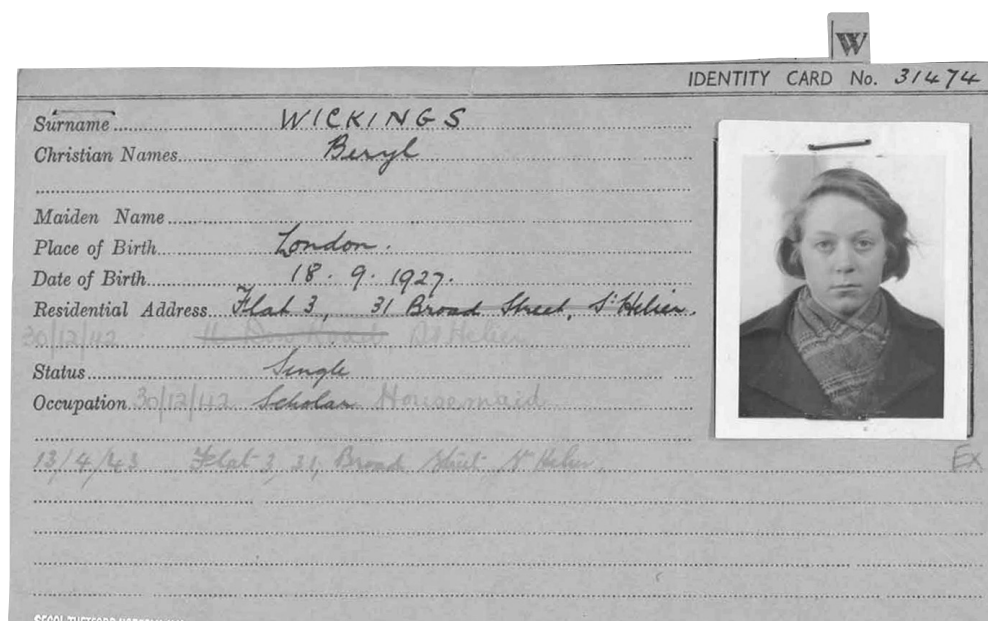 W
IDENTITY CARD No. 31474
Surname WICKINGS
Christian Names Beryl
Maiden Name
Place of Birth London.
Date of Birth 18. 9. 1927.
Residential Address Flat 3, 31 Broad Street, St Helier.
30/12/42 St Helier
Status Single
Occupation 30/12/42 Scholar Housemaid
13/4/43 Flat 3, 31, Broad Street, St Helier.
Ex